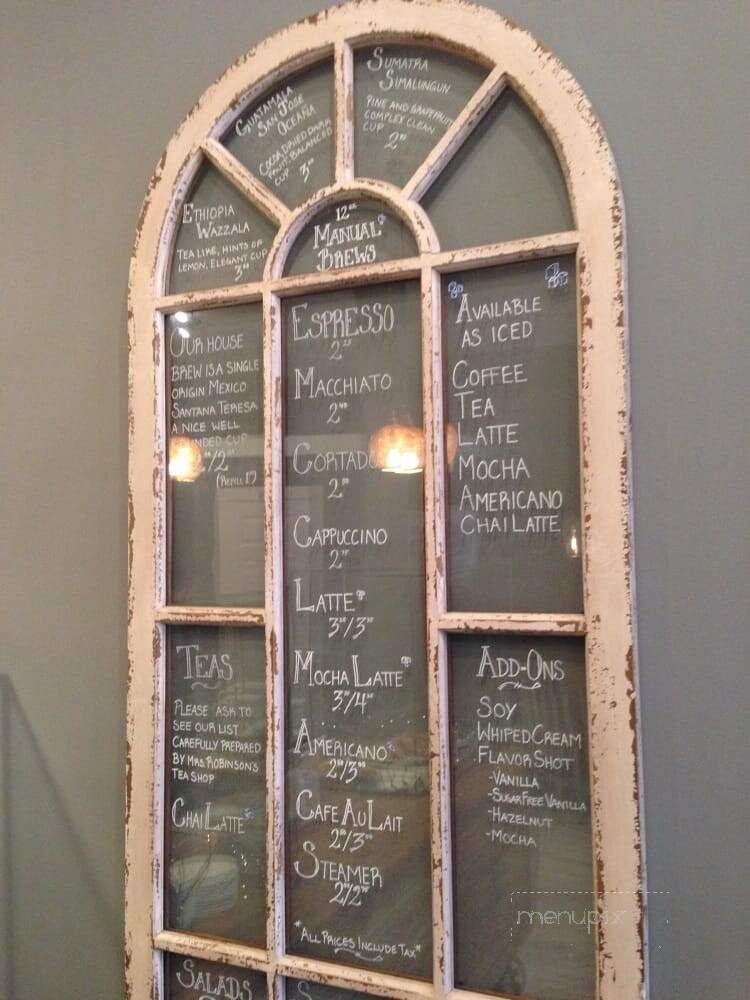 Guatamala
San Jose
Oceaña
Cocoa, Dried Dark
Fruit, Balanced
Cup 3
Sumatra
Simalungun
Pine and Grapefruit
Complex Clean
Cup
2
Ethiopia
Wazzala
Tea Like, Hints of
Lemon, Elegant Cup
3
12
Manual
Brews
Our House
Brew is a Single
Origin Mexico
Santana Teresa
A Nice Well
Cup
/2
(Refill 1)
Espresso
2
Macchiato
2
Cortado
2
Cappuccino
2
Latte
3/3
Mocha Latte
3/4
Americano
2/3
Cafe Au Lait
2/3
Steamer
2/2
*All Prices Include Tax*
Available
as Iced
Coffee
Tea
Latte
Mocha
Americano
Chai Latte
Teas
Please ask to
see our list
carefully prepared
by Mrs. Robinson's
Tea Shop
Chai Latte
Add-Ons
Soy
Whiped Cream
Flavor Shot
-Vanilla
-Sugar Free Vanilla
-Hazelnut
-Mocha
Salads
menupix